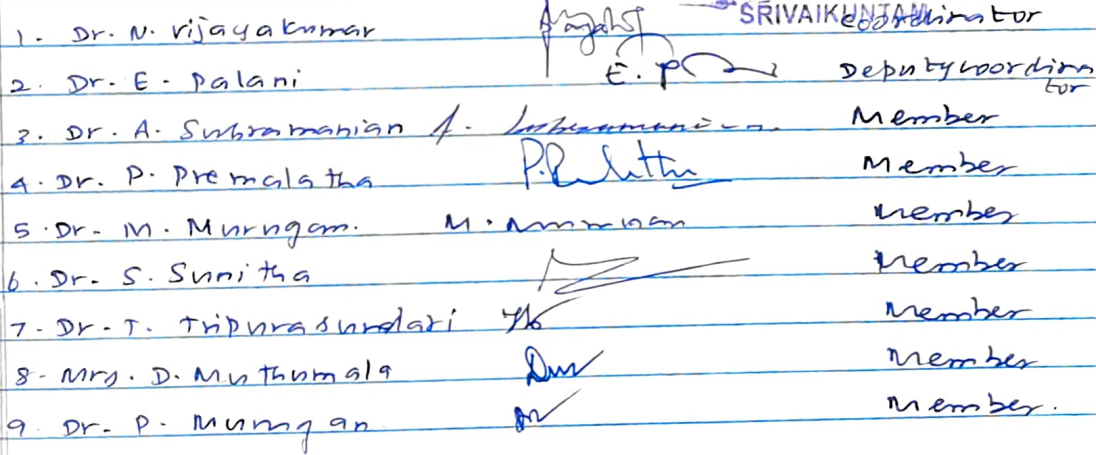 SRIVAIKUNTAM
1. Dr. N. Vijayakumar Coordinator
2. Dr. E. Palani E. P Deputy coordina
tor
3. Dr. A. Subramanian A. Subramanian Member
4. Dr. P. Premalatha Member
5. Dr. M. Murugan. M. Member
6. Dr. S. Sunitha Member
7. Dr. T. Tripurasundari Member
8. Mrs. D. Muthumala Member
9. Dr. P. Murugan Member.